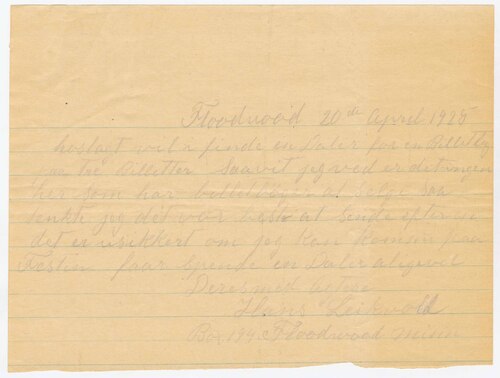 Floodwood 20de April 1925
hoslagt vil i finde en Daler for en Billet
om tre Billetter Saavit jeg ved er det ingen
her som har billetter at Selje saa
tenkte jeg det var best at Sende efter en
det er usikkert om jeg kan komme paa
Festen faar spende en Daler aligevel
Deres med agtelse
Hans Leikvold
Box 194 Floodwood Minn